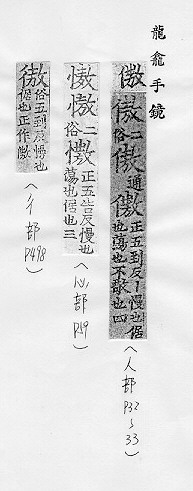 龍龕手鏡
傲傲俗二傲通傲正五到反丨慢也倨也蕩也不敬也四
（人部 P32～33）
憿憿俗二憿正五告反慢也蕩也倨也三
（心部 P59）
俗五到反慢也倨也正作傲
（彳部 P498）